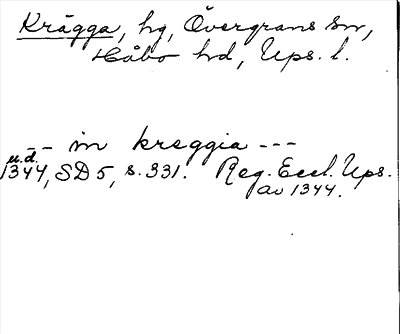 Krägga, hg, Övergrans sn,
Håbo hd, Ups. l.
-- in kreggia ---
u.d.
1344, SD 5, s. 331. Reg. Eccl. Ups.
av 1344.